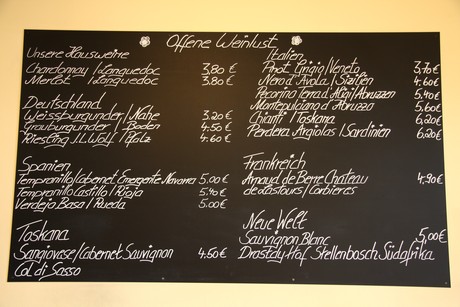 Offene Weinlust
Unsere Hausweine
Chardonnay / Languedoc 3,80 €
Merlot / Languedoc 3,80 €
Deutschland
Weissburgunder / Nahe 3.20 €
Grauburgunder / Baden 4.50 €
Riesling J.L. Wolf / Pfalz 4.60 €
Spanien
Tempranillo/Cabernet Emergente Navarra 5.00 €
Tempranillo Castillo / Rioja 5.40 €
Verdejo Basa / Rueda 5.00 €
Toskana
Sangiovese / Cabernet Sauvignon 4.60 €
Col di Sasso
Italien
Pinot Grigio / Veneto 3,70 €
Nero d'Avola / Sizilien 4.60 €
Pecorino Terra d'Aligi / Abruzzen 5,40 €
Montepulciano d'Abruzzo 5,60 €
Chianti / Toskana 6,20 €
Perdera Argiolas / Sardinien 6,20 €
Frankreich
Arnaud de Berre Chateau 4,90 €
de Lastours / Corbieres
Neue Welt
Sauvignon Blanc 5,00 €
Drostdy Hof Stellenbosch Südafrika